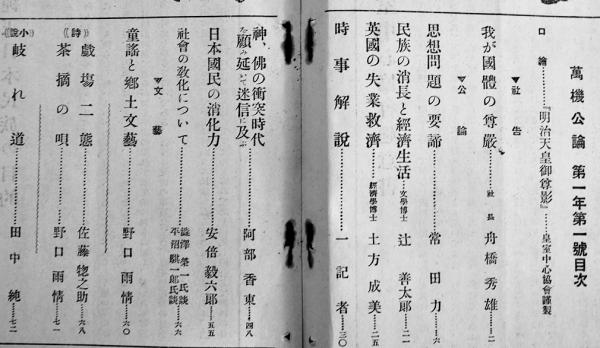 萬機公論 第一年第一號目次
口繪………『明治天皇御尊影』………皇室中心協會謹製
▼社告
我が國體の尊嚴………社長 舟橋秀雄…二
▼公論
思想問題の要諦………常田力…六
民族の消長と經濟生活…文學博士 辻善太郎…二一
英國の失業救濟………經濟學博士 土方成美…二五
時事解說………一記者…三〇
神、佛の衝突時代を顧み延て迷信に及ぶ………阿部香東…四八
日本國民の消化力………安倍毅六郎…五五
社會の敎化について………澁澤榮一氏談 平沼騏一郎氏談…六六
▼文藝
童謠と鄕土文藝………野口雨情…六〇
《詩》戲場二態………佐藤惣之助…六八
茶摘の唄………野口雨情…七一
《小說》岐れ道………田中純…七二